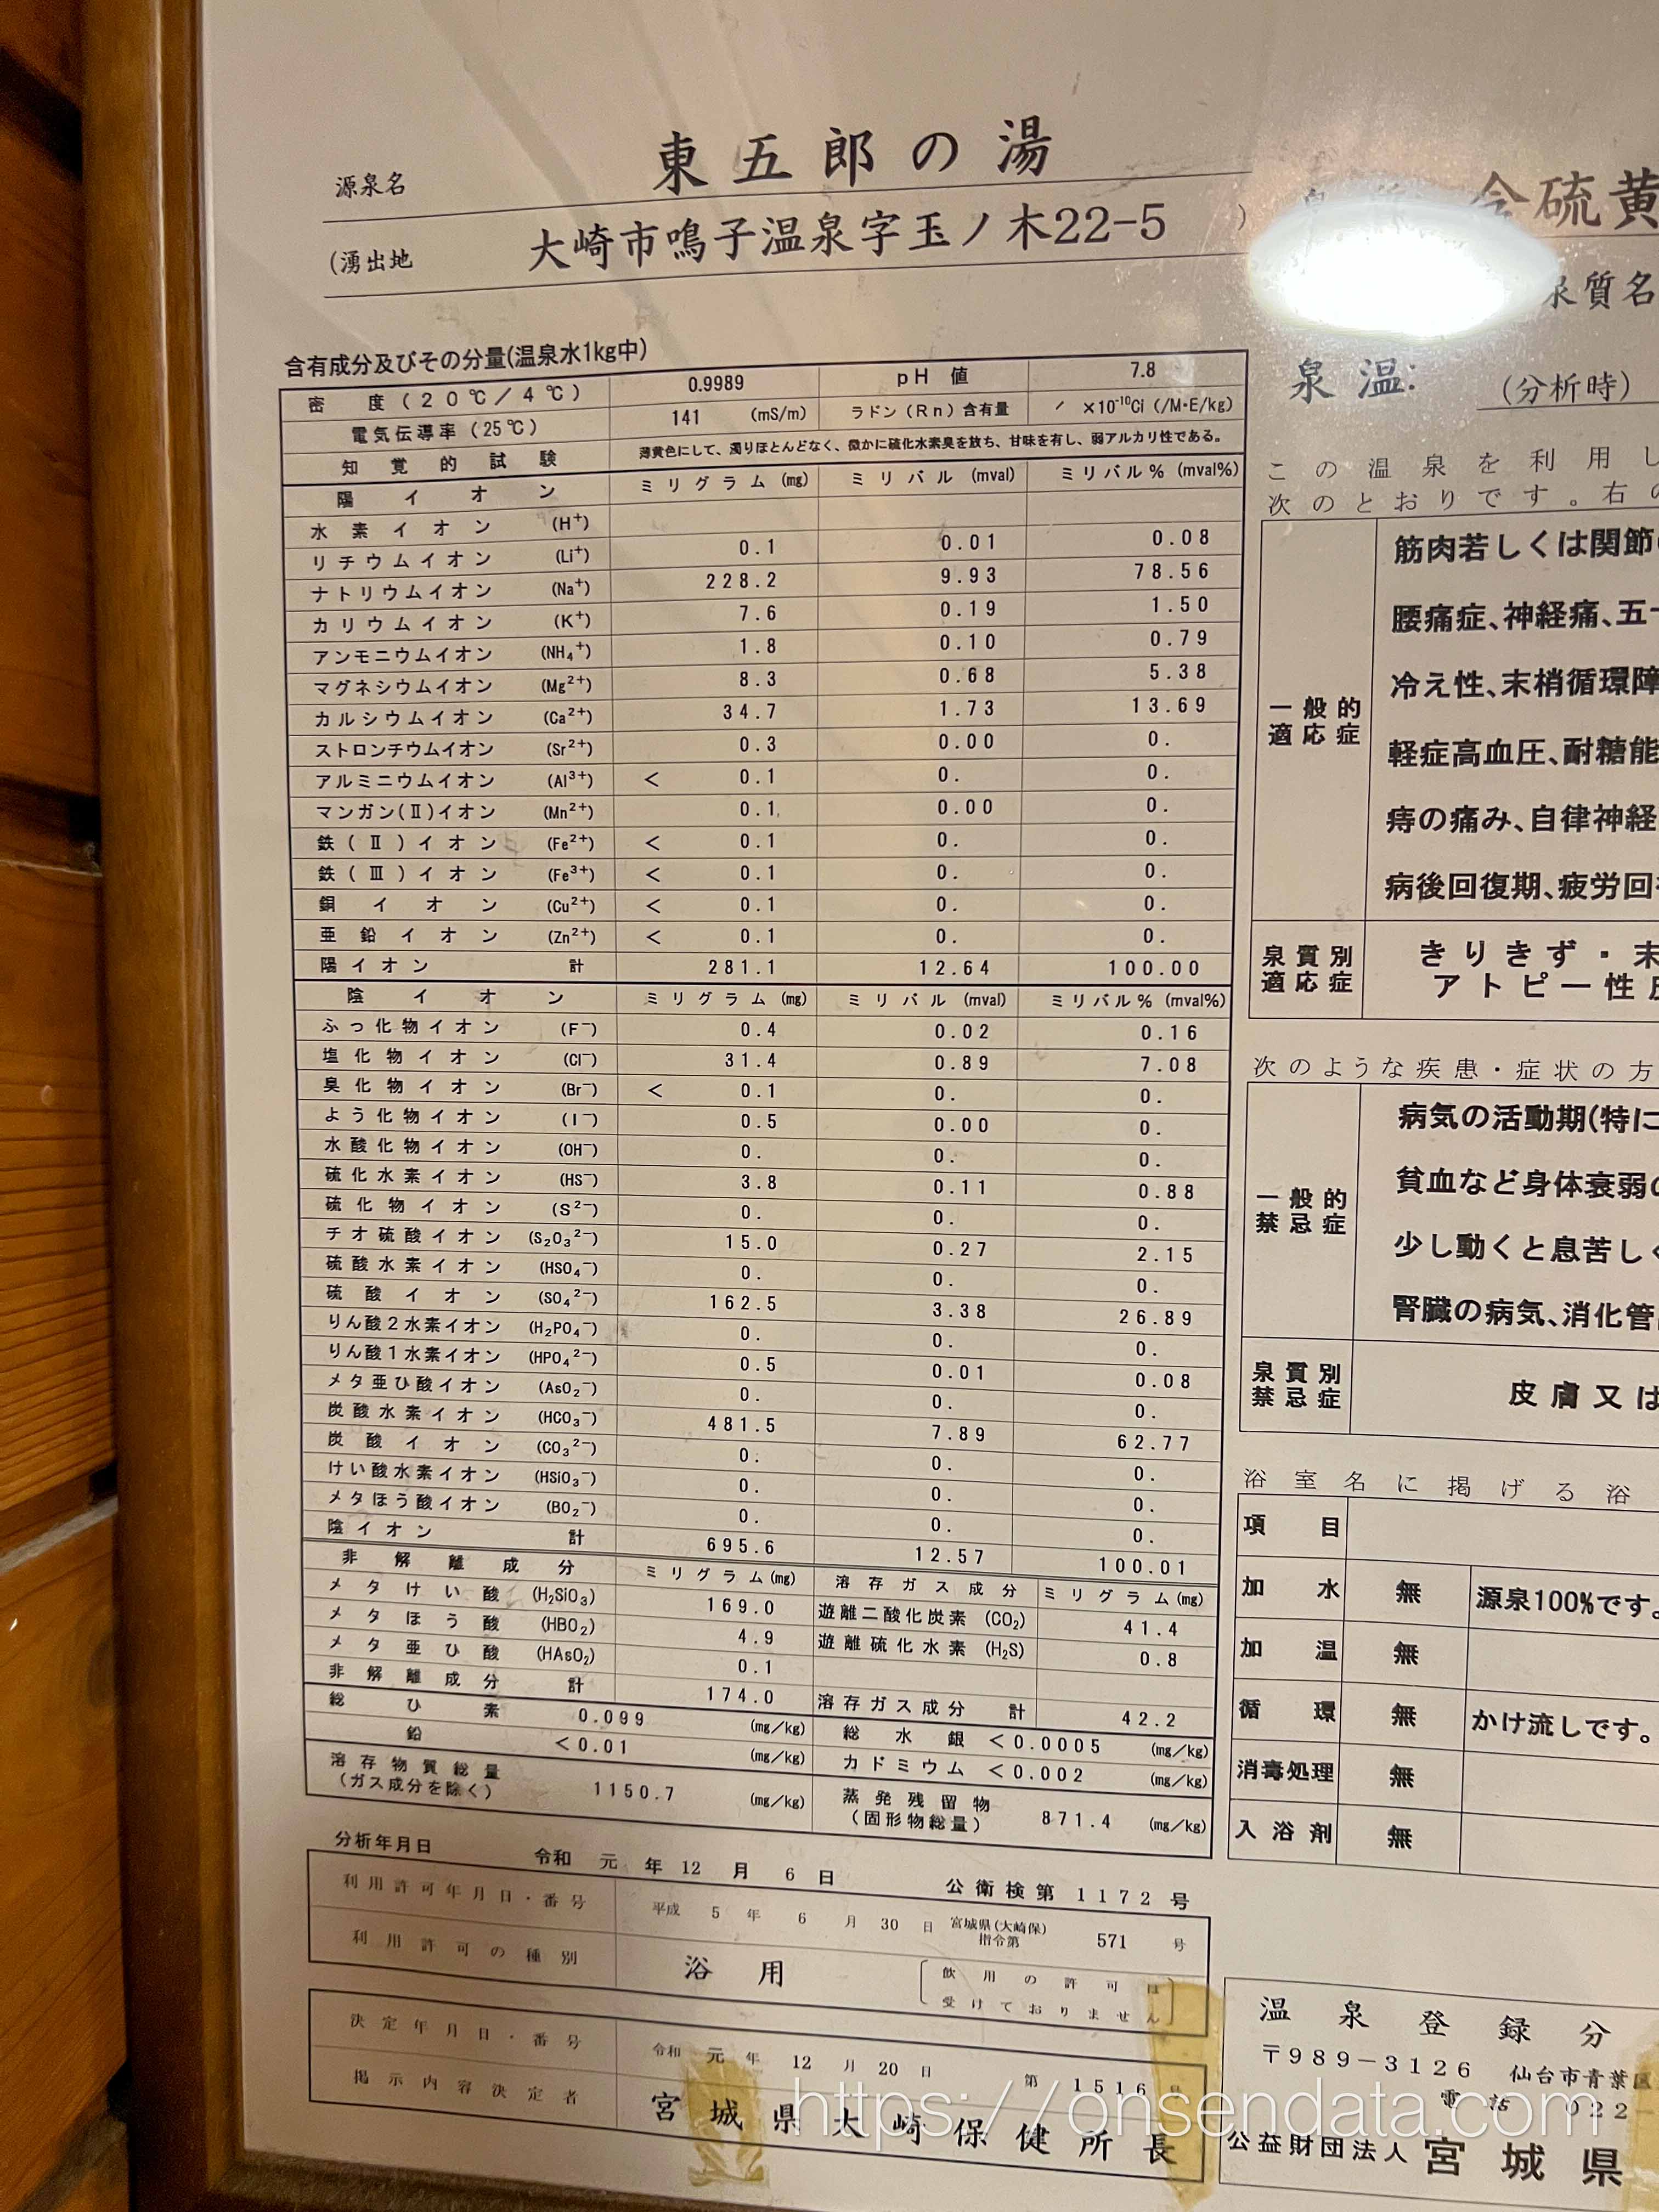 源泉名 東五郎の湯
(湧出地 大崎市鳴子温泉字玉ノ木22-5 )
含有成分及びその分量(温泉水1kg中)
密度(20℃/4℃) 0.9989 pH値 7.8
電気伝導率(25℃) 141 (mS/m) ラドン(Rn)含有量 ×10⁻¹⁰Ci(/M・E/kg)
知覚的試験 薄黄色にして、濁りほとんどなく、微かに硫化水素臭を放ち、甘味を有し、弱アルカリ性である。
陽イオン ミリグラム(mg) ミリバル(mval) ミリバル%(mval%)
水素イオン (H⁺)
リチウムイオン (Li⁺) 0.1 0.01 0.08
ナトリウムイオン (Na⁺) 228.2 9.93 78.56
カリウムイオン (K⁺) 7.6 0.19 1.50
アンモニウムイオン (NH₄⁺) 1.8 0.10 0.79
マグネシウムイオン (Mg²⁺) 8.3 0.68 5.38
カルシウムイオン (Ca²⁺) 34.7 1.73 13.69
ストロンチウムイオン (Sr²⁺) 0.3 0.00 0.
アルミニウムイオン (Al³⁺) < 0.1 0. 0.
マンガン(Ⅱ)イオン (Mn²⁺) 0.1 0.00 0.
鉄(Ⅱ)イオン (Fe²⁺) < 0.1 0. 0.
鉄(Ⅲ)イオン (Fe³⁺) < 0.1 0. 0.
銅イオン (Cu²⁺) < 0.1 0. 0.
亜鉛イオン (Zn²⁺) < 0.1 0. 0.
陽イオン 計 281.1 12.64 100.00
陰イオン ミリグラム(mg) ミリバル(mval) ミリバル%(mval%)
ふっ化物イオン (F⁻) 0.4 0.02 0.16
塩化物イオン (Cl⁻) 31.4 0.89 7.08
臭化物イオン (Br⁻) < 0.1 0. 0.
よう化物イオン (I⁻) 0.5 0.00 0.
水酸化物イオン (OH⁻) 0. 0. 0.
硫化水素イオン (HS⁻) 3.8 0.11 0.88
硫化物イオン (S²⁻) 0. 0. 0.
チオ硫酸イオン (S₂O₃²⁻) 15.0 0.27 2.15
硫酸水素イオン (HSO₄⁻) 0. 0. 0.
硫酸イオン (SO₄²⁻) 162.5 3.38 26.89
りん酸2水素イオン (H₂PO₄⁻) 0. 0. 0.
りん酸1水素イオン (HPO₄²⁻) 0.5 0.01 0.08
メタ亜ひ酸イオン (AsO₂⁻) 0. 0. 0.
炭酸水素イオン (HCO₃⁻) 481.5 7.89 62.77
炭酸イオン (CO₃²⁻) 0. 0. 0.
けい酸水素イオン (HSiO₃⁻) 0. 0. 0.
メタほう酸イオン (BO₂⁻) 0. 0. 0.
陰イオン 計 695.6 12.57 100.01
非解離成分 ミリグラム(mg) 溶存ガス成分 ミリグラム(mg)
メタけい酸 (H₂SiO₃) 169.0 遊離二酸化炭素 (CO₂) 41.4
メタほう酸 (HBO₂) 4.9 遊離硫化水素 (H₂S) 0.8
メタ亜ひ酸 (HAsO₂) 0.1
非解離成分 計 174.0 溶存ガス成分 計 42.2
総ひ素 0.099 (mg/kg) 総水銀 <0.0005 (mg/kg)
鉛 <0.01 (mg/kg) カドミウム <0.002 (mg/kg)
溶存物質総量 1150.7 (mg/kg) 蒸発残留物 871.4 (mg/kg)
(ガス成分を除く) (固形物総量)
分析年月日 令和 元 年 12 月 6 日 公衛検第 1172 号
利用許可年月日・番号 平成 5 年 6 月 30 日 宮城県(大崎保) 571 号
指令第
利用許可の種別 浴用 飲用の許可は
受けておりません
決定年月日・番号 令和 元 年 12 月 20 日 第 1516
掲示内容決定者 宮城県大崎保健所長
含硫黄
泉質名
泉温: (分析時)
この温泉を利用し
次のとおりです。右の
一般的
適応症
筋肉若しくは関節
腰痛症、神経痛、五
冷え性、末梢循環障
軽症高血圧、耐糖能
痔の痛み、自律神経
病後回復期、疲労回
泉質別
適応症
きりきず・末
アトピー性皮
次のような疾患・症状の方
一般的
禁忌症
病気の活動期(特に
貧血など身体衰弱の
少し動くと息苦しく
腎臓の病気、消化管
泉質別
禁忌症
皮膚又は
浴室名に掲げる浴
項目
加水 無 源泉100%です。
加温 無
循環 無 かけ流しです。
消毒処理 無
入浴剤 無
温泉登録分
〒989-3126 仙台市青葉区
電話 022-
公益財団法人 宮城県
https://onsendata.com